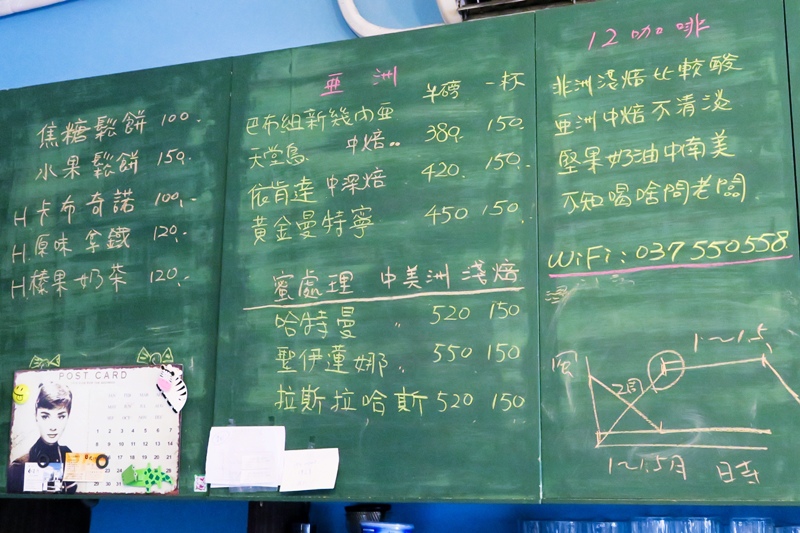 焦糖鬆餅 100.
水果鬆餅 150.
H.卡布奇諾 100.
H.原味拿鐵 120.
H.榛果奶茶 120.
POST CARD
亞洲 半磅 一杯
巴布紐新幾內亞
天堂鳥. 中焙.. 380. 150.
依肯達 中深焙 420. 150.
黃金曼特寧 450 150.
蜜處理 中美洲淺焙
哈特曼 〃 520 150
聖伊蓮娜. 550 150
拉斯拉哈斯 520 150
12咖啡
非洲淺焙比較酸
亞洲中焙不清淡
堅果奶油中南美
不知喝啥問老闆
WiFi:037550558
1~1.5
2周
1~1.5月